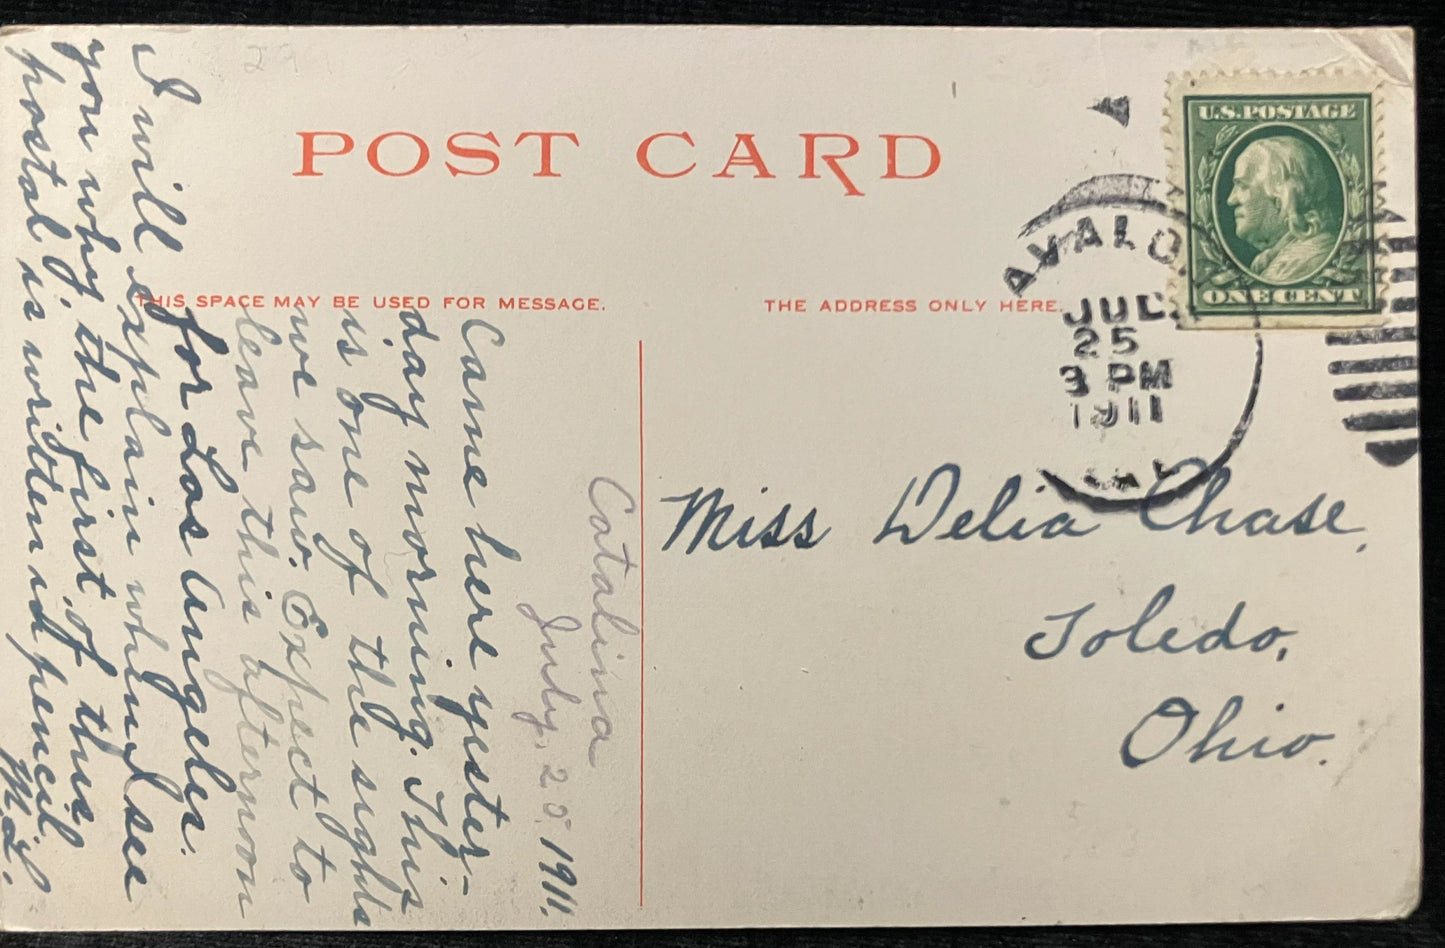 POST CARD
THIS SPACE MAY BE USED FOR MESSAGE.
THE ADDRESS ONLY HERE.
U.S. POSTAGE
ONE CENT
AVALON
JUL
25
3 PM
1911
CAL
Miss Delia Chase,
Toledo,
Ohio.
Catalina
July, 25, 1911.
Came here yester-
day morning. This
is one of the sights
we saw. Expect to
leave this afternoon
for Los Angeles.
I will explain when I see
you why the first of this
postal is written in pencil
29